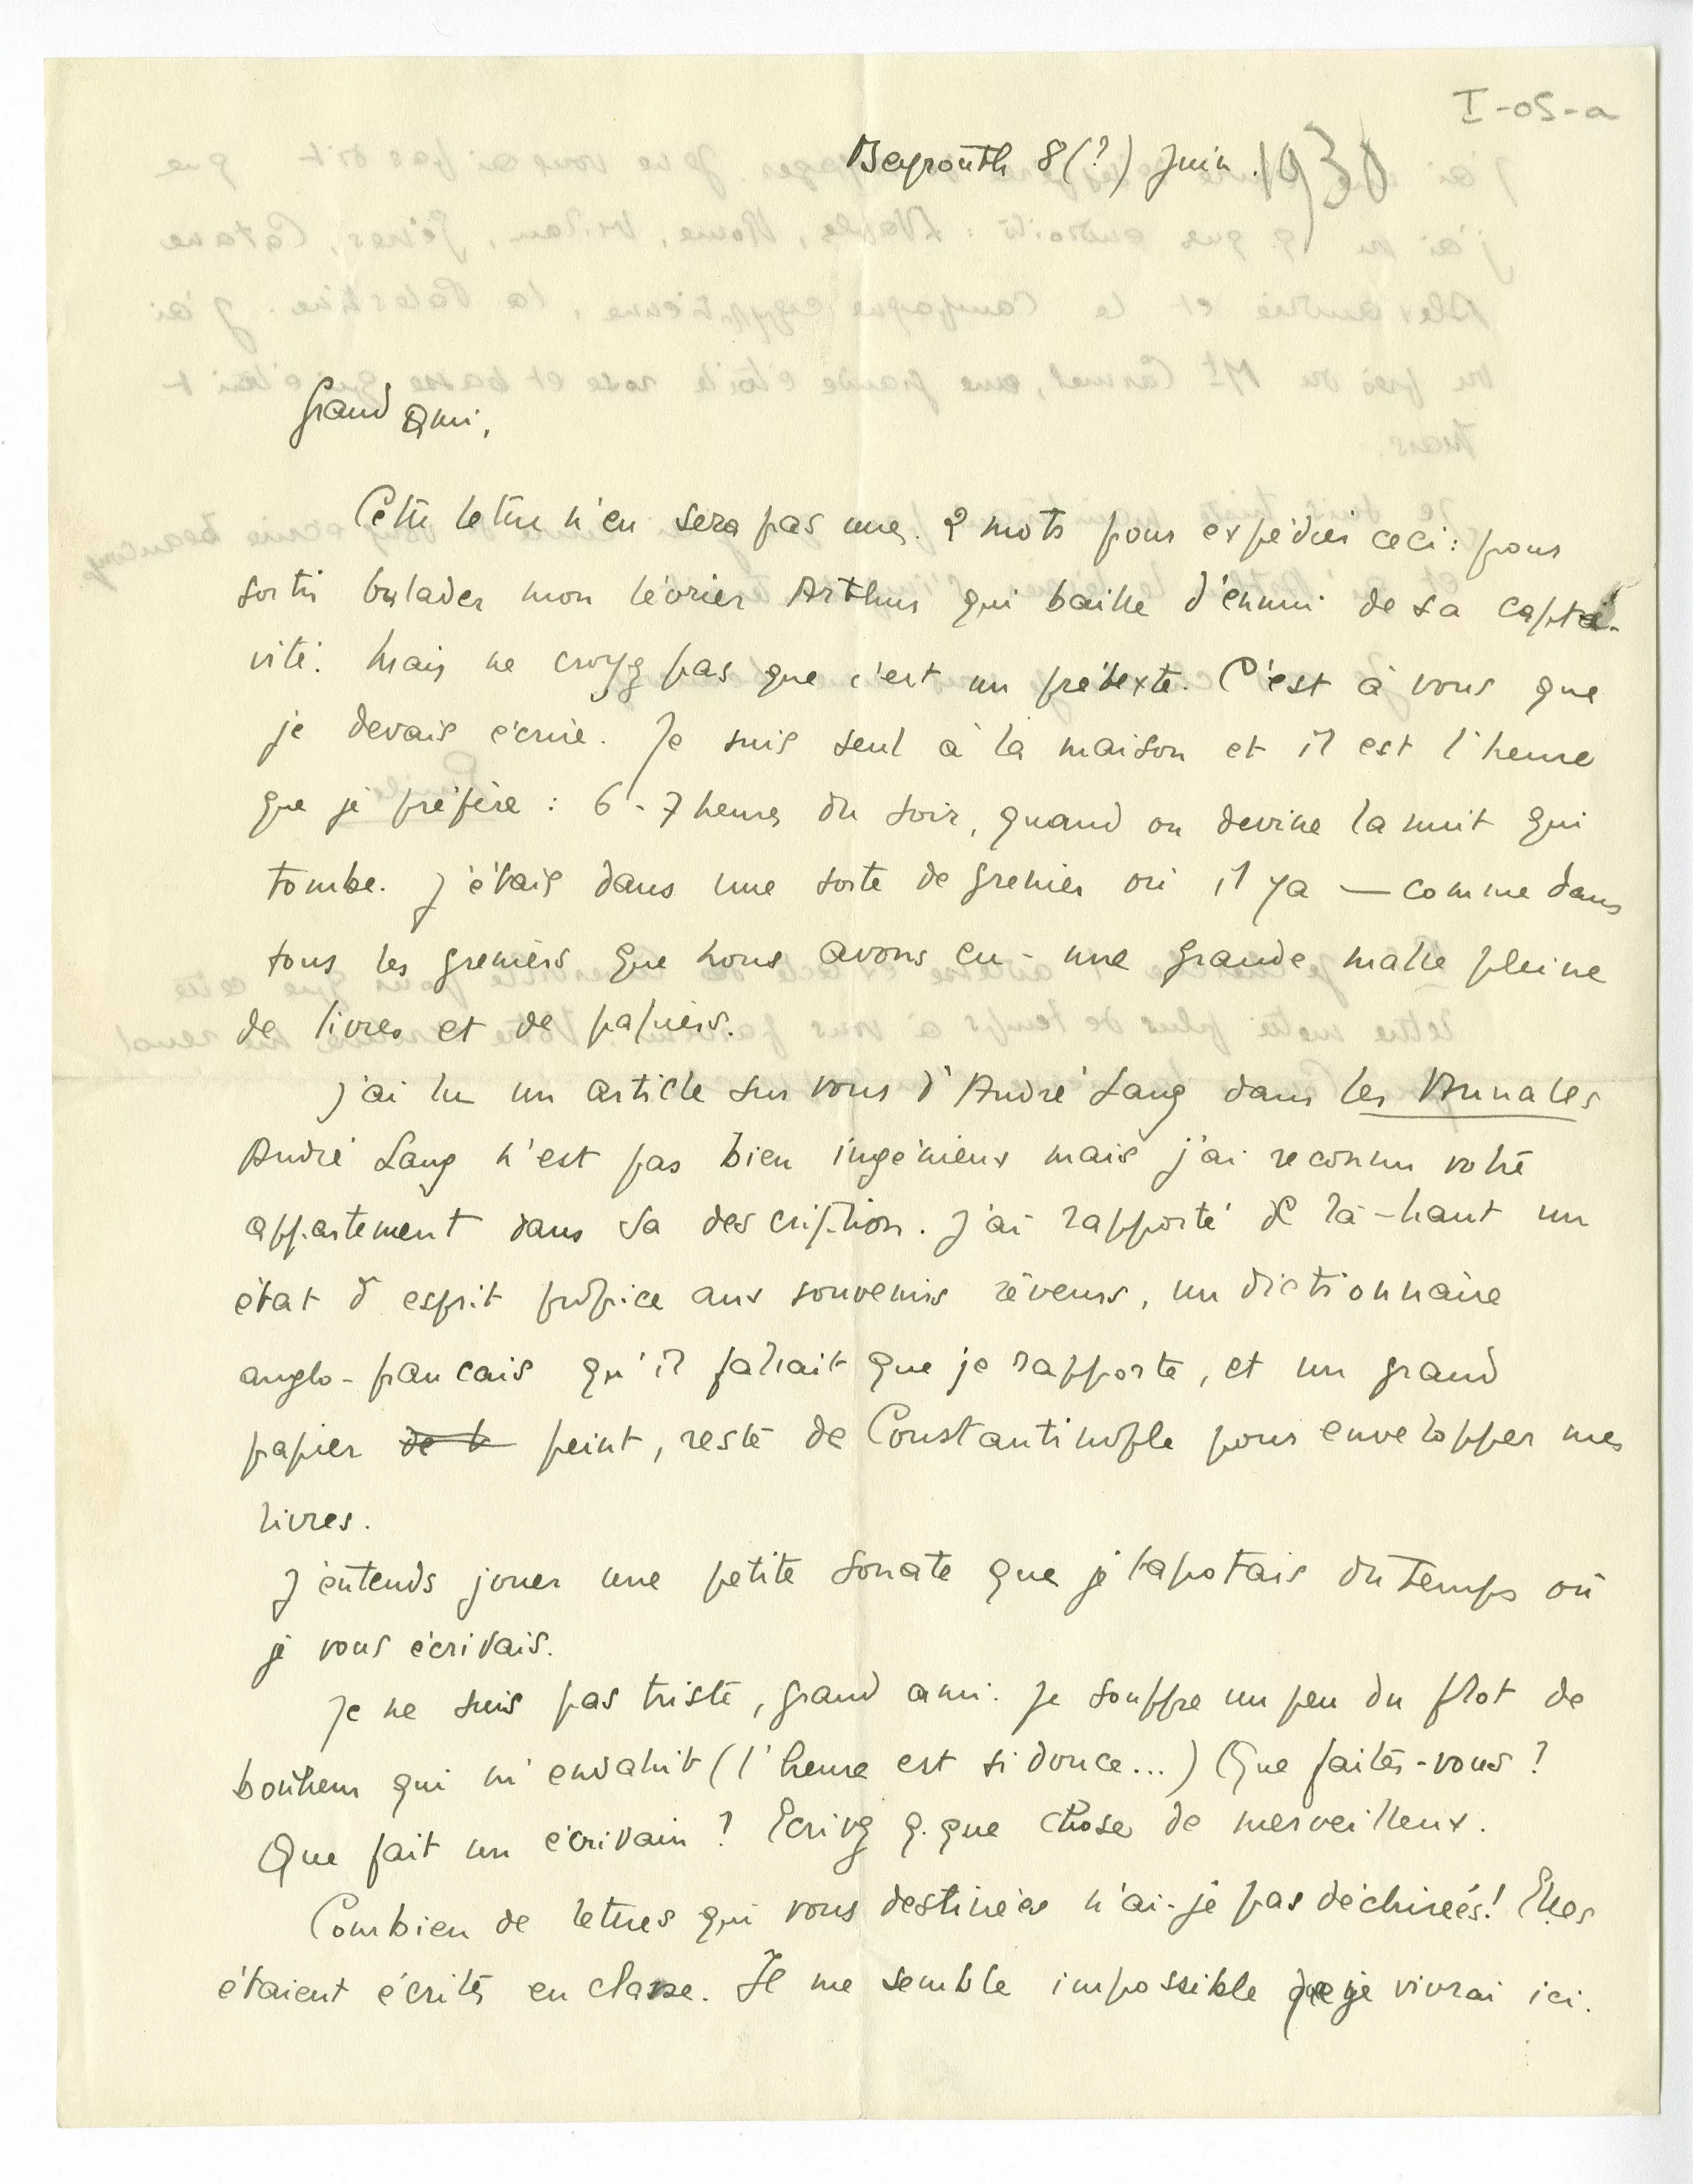 I-05-a
Beyrouth 8(?) Juin. 1930
Grand Ami,
Cette lettre n'en sera pas une. 2 mots pour expédier ceci : pour
sortir balader mon lévrier Arthur qui baille d'ennui de sa capti-
vité. Mais ne croyez pas que c'est un prétexte. C'est à vous que
je devais écrire. Je suis seul à la maison et il est l'heure
que je préfère : 6 - 7 heures du soir, quand on devine la nuit qui
tombe. J'étais dans une sorte de grenier où il y a — comme dans
tous les greniers que nous avons eu - une grande malle pleine
de livres et de papiers.
J'ai lu un article sur vous d'André Lang dans les Annales
André Lang n'est pas bien ingénieux mais j'ai reconnu votre
appartement dans sa description. J'ai rapporté de là-haut un
état d'esprit propice aux souvenirs rêveurs, un dictionnaire
anglo-francais qu'il fallait que je rapporte, et un grand
papier de b peint, resté de Constantinople pour envelopper mes
livres.
J'entends jouer une petite sonate que je tapotais du temps où
je vous écrivais.
Je ne suis pas triste, grand ami. Je souffre un peu du flot de
bonheur qui m'envahit (l'heure est si douce...) Que faites-vous ?
Que fait un écrivain ? Ecrivez q. que chose de merveilleux.
Combien de lettres qui vous destinées n'ai-je pas déchirées! Elles
étaient écrites en classe. Il me semble impossible que je vivrai ici.